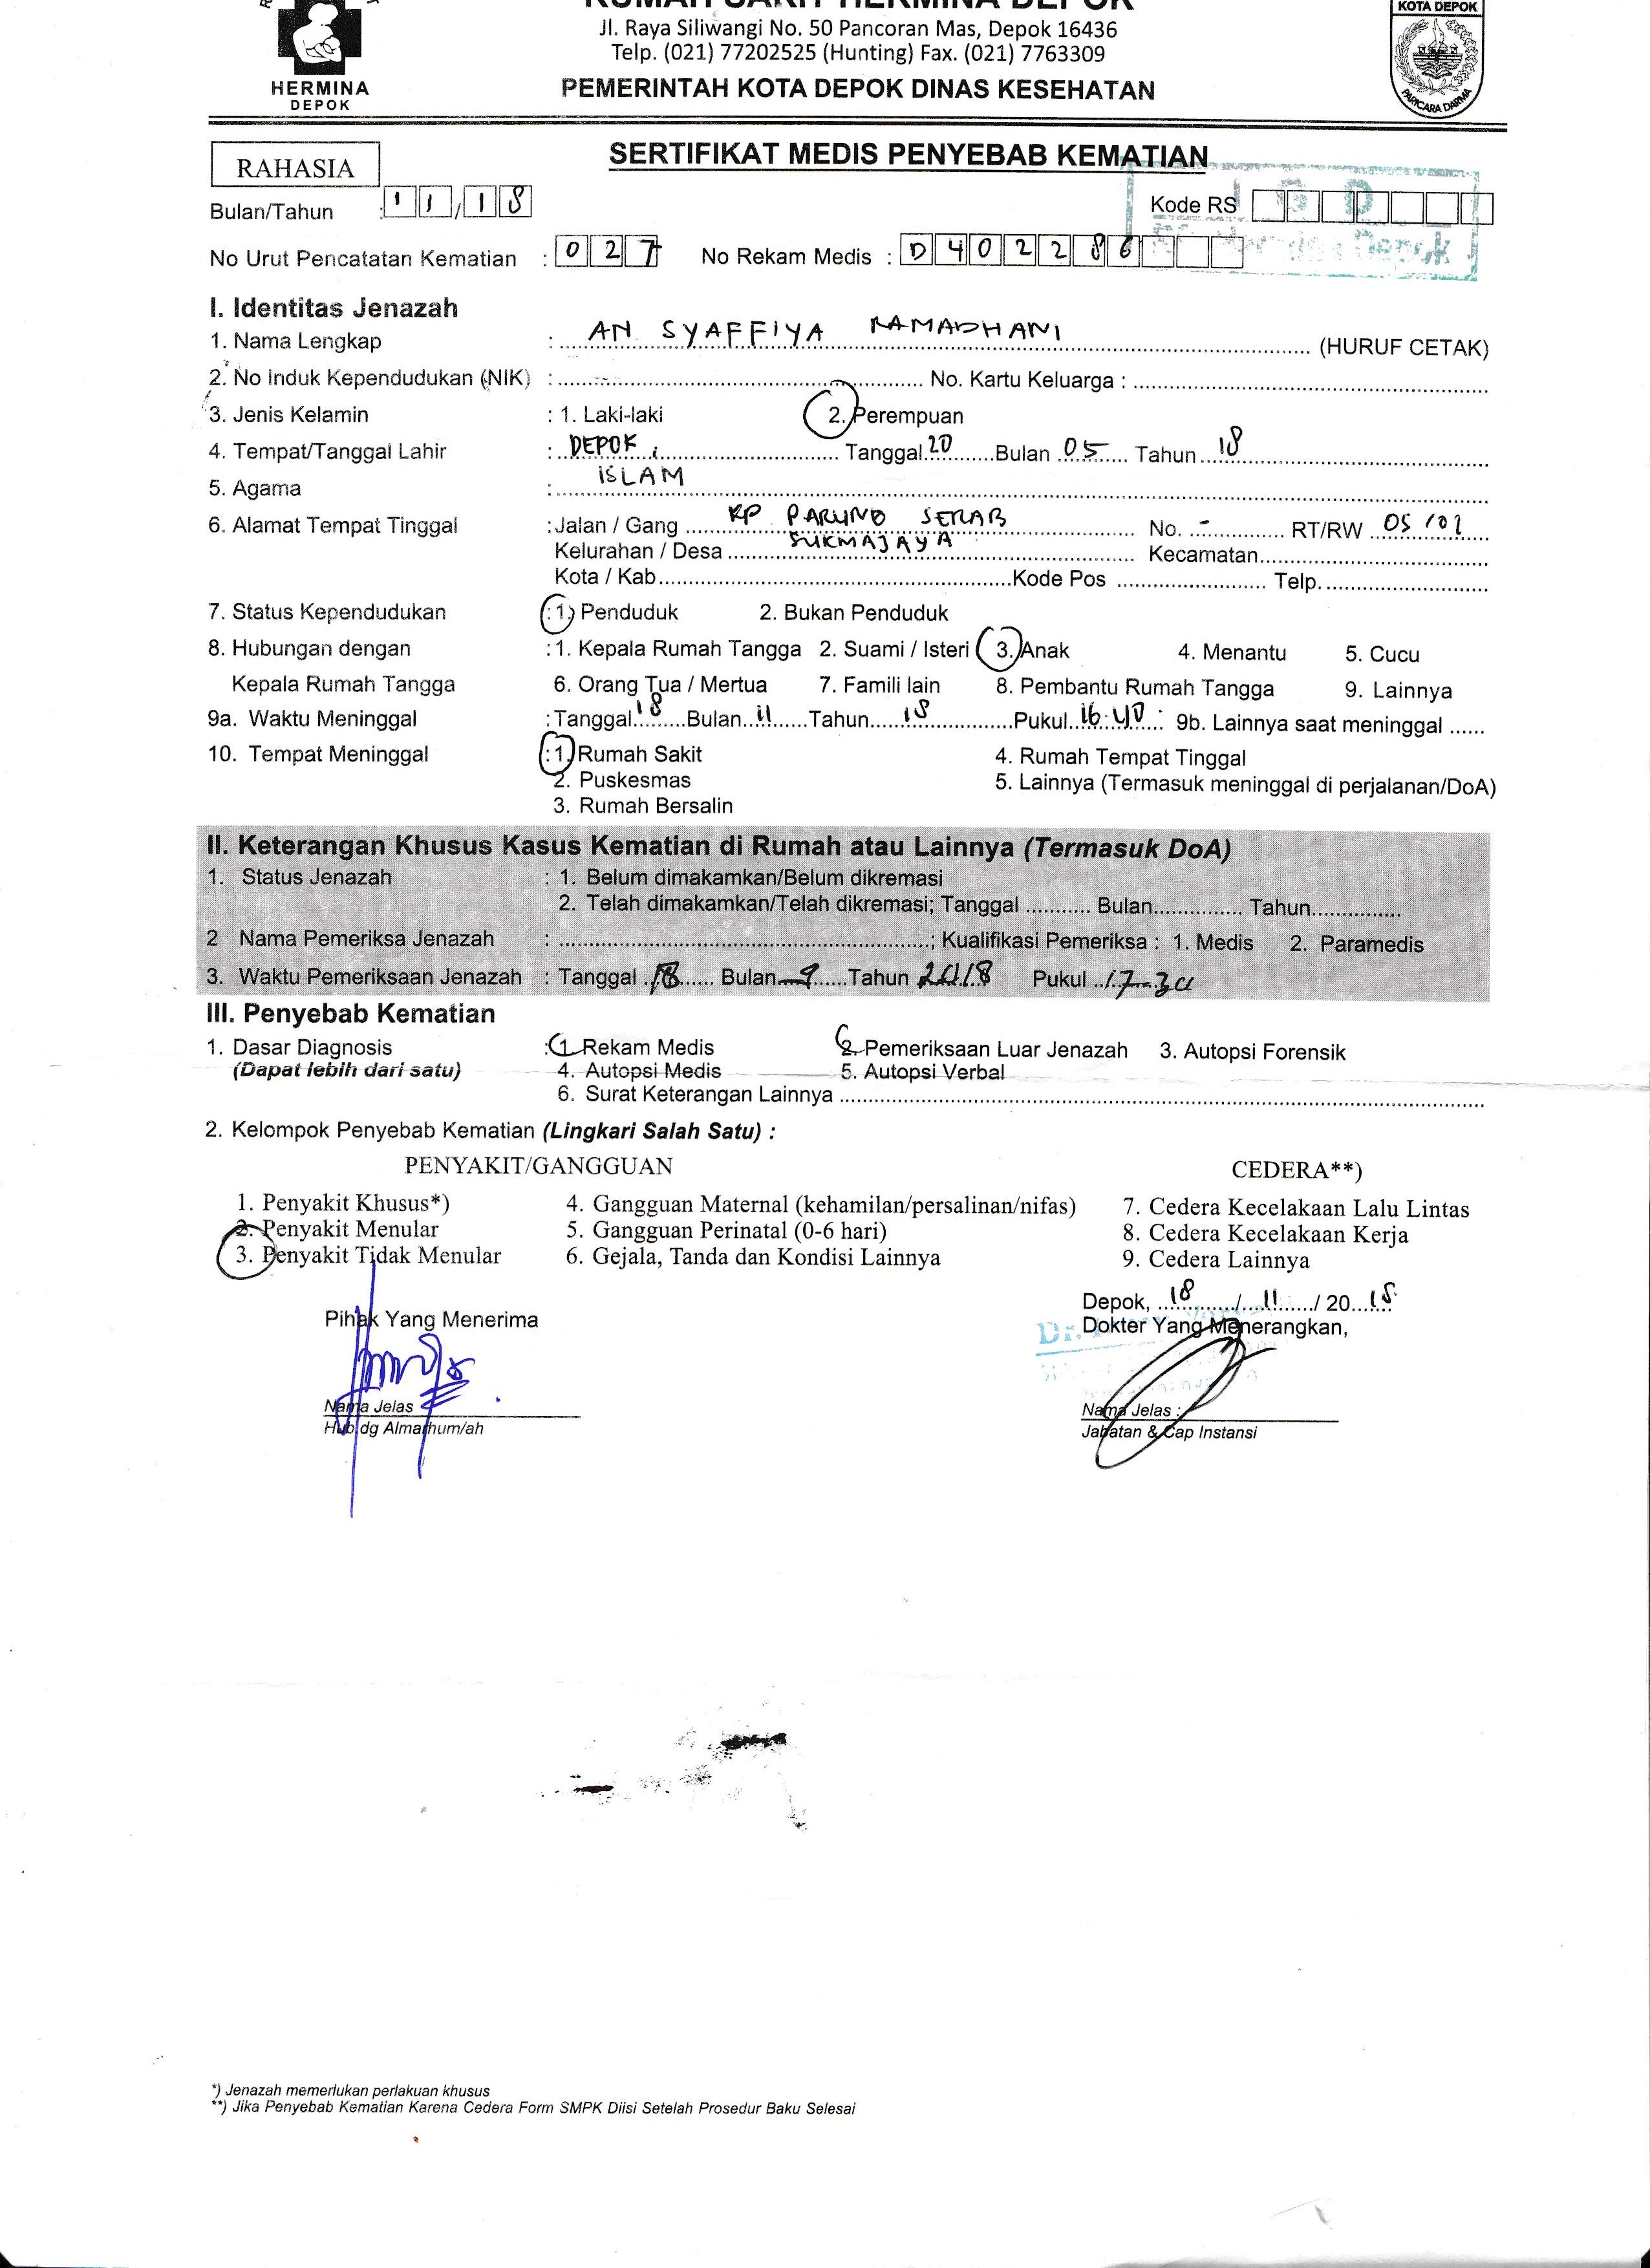 HERMINA
DEPOK
RUMAH SAKIT HERMINA DEPOK
Jl. Raya Siliwangi No. 50 Pancoran Mas, Depok 16436
Telp. (021) 77202525 (Hunting) Fax. (021) 7763309
PEMERINTAH KOTA DEPOK DINAS KESEHATAN
KOTA DEPOK
PARICARA DARMA
RAHASIA
SERTIFIKAT MEDIS PENYEBAB KEMATIAN
Bulan/Tahun : 11/18 Kode RS
No Urut Pencatatan Kematian : 027 No Rekam Medis : D402286
I. Identitas Jenazah
1. Nama Lengkap : AN SYAFFIYA RAMADHANI (HURUF CETAK)
2. No Induk Kependudukan (NIK) : No. Kartu Keluarga :
3. Jenis Kelamin : 1. Laki-laki 2. Perempuan
4. Tempat/Tanggal Lahir : DEPOK, Tanggal 20 Bulan 05 Tahun 18
5. Agama : ISLAM
6. Alamat Tempat Tinggal : Jalan / Gang KP PARUNG SERAB No. - RT/RW 05/02
Kelurahan / Desa SUKMAJAYA Kecamatan
Kota / Kab Kode Pos Telp.
7. Status Kependudukan : 1. Penduduk 2. Bukan Penduduk
8. Hubungan dengan : 1. Kepala Rumah Tangga 2. Suami / Isteri 3. Anak 4. Menantu 5. Cucu
Kepala Rumah Tangga 6. Orang Tua / Mertua 7. Famili lain 8. Pembantu Rumah Tangga 9. Lainnya
9a. Waktu Meninggal : Tanggal 18 Bulan 11 Tahun 18 Pukul 16:40 : 9b. Lainnya saat meninggal ......
10. Tempat Meninggal : 1. Rumah Sakit 4. Rumah Tempat Tinggal
2. Puskesmas 5. Lainnya (Termasuk meninggal di perjalanan/DoA)
3. Rumah Bersalin
II. Keterangan Khusus Kasus Kematian di Rumah atau Lainnya (Termasuk DoA)
1. Status Jenazah : 1. Belum dimakamkan/Belum dikremasi
2. Telah dimakamkan/Telah dikremasi; Tanggal ........... Bulan............... Tahun...............
2 Nama Pemeriksa Jenazah : ; Kualifikasi Pemeriksa : 1. Medis 2. Paramedis
3. Waktu Pemeriksaan Jenazah : Tanggal 18 Bulan 9 Tahun 2018 Pukul 17-30
III. Penyebab Kematian
1. Dasar Diagnosis : 1. Rekam Medis 2. Pemeriksaan Luar Jenazah 3. Autopsi Forensik
(Dapat lebih dari satu) 4. Autopsi Medis 5. Autopsi Verbal
6. Surat Keterangan Lainnya
2. Kelompok Penyebab Kematian (Lingkari Salah Satu) :
PENYAKIT/GANGGUAN CEDERA**)
1. Penyakit Khusus*) 4. Gangguan Maternal (kehamilan/persalinan/nifas) 7. Cedera Kecelakaan Lalu Lintas
2. Penyakit Menular 5. Gangguan Perinatal (0-6 hari) 8. Cedera Kecelakaan Kerja
3. Penyakit Tidak Menular 6. Gejala, Tanda dan Kondisi Lainnya 9. Cedera Lainnya
Depok, 18 / 11 / 2018
Pihak Yang Menerima Dokter Yang Menerangkan,
Dr.
Nama Jelas Nama Jelas :
Hub dg Almarhum/ah Jabatan & Cap Instansi
*) Jenazah memerlukan perlakuan khusus
**) Jika Penyebab Kematian Karena Cedera Form SMPK Diisi Setelah Prosedur Baku Selesai